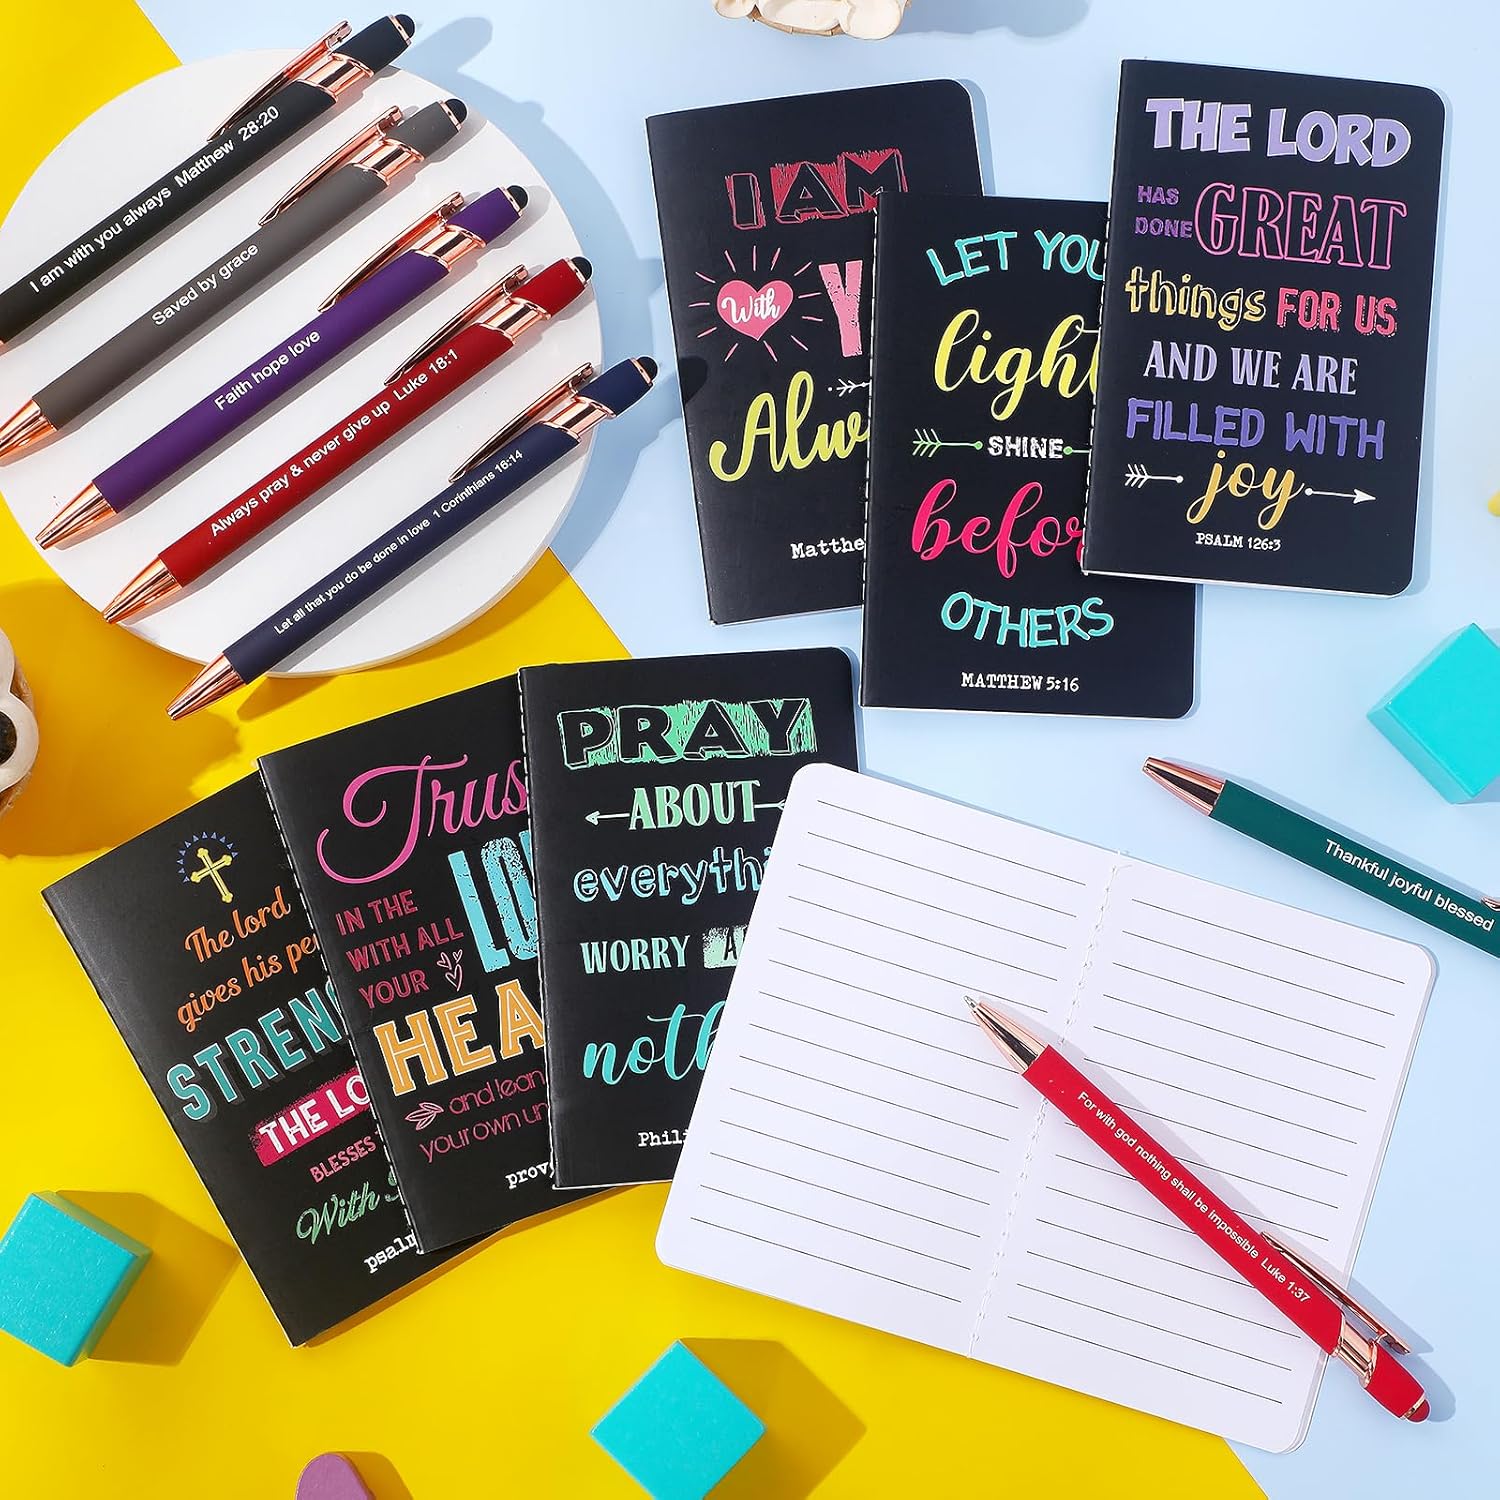 I am with you always  Matthew  28:20
Saved by grace
Faith hope love
Always pray & never give up  Luke 18:1
Let all that you do be done in love  1 Corinthians 16:14
I AM
With
Matthe
LET YOU
light
SHINE
before
OTHERS
MATTHEW 5:16
THE LORD
HAS
DONE GREAT
things FOR US
AND WE ARE
FILLED WITH
joy
PSALM 126:3
The lord
gives his
STREN
THE LO
BLESSES
With
psalm
Trus
IN THE
WITH ALL
YOUR
HEA
and lean
your own un
prov
PRAY
ABOUT
everythi
WORRY
noth
Phili
Thankful joyful blessed
For with god nothing shall be impossible  Luke 1:37